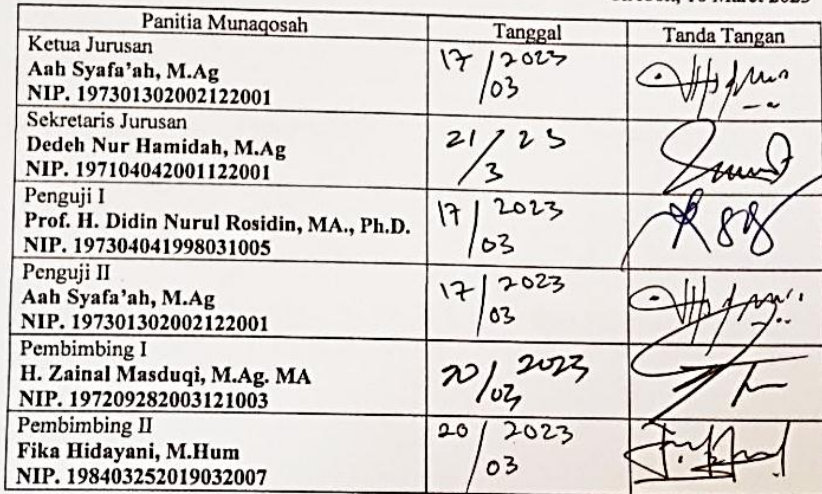 Maret 2023
Panitia Munaqosah Tanggal Tanda Tangan
Ketua Jurusan
Aah Syafa'ah, M.Ag
NIP. 197301302002122001
17/2023
03
Sekretaris Jurusan
Dedeh Nur Hamidah, M.Ag
NIP. 197104042001122001
21/23
3
Penguji I
Prof. H. Didin Nurul Rosidin, MA., Ph.D.
NIP. 197304041998031005
17/2023
03
Penguji II
Aah Syafa'ah, M.Ag
NIP. 197301302002122001
17/2023
03
Pembimbing I
H. Zainal Masduqi, M.Ag. MA
NIP. 197209282003121003
20/2023
03
Pembimbing II
Fika Hidayani, M.Hum
NIP. 198403252019032007
20/2023
03